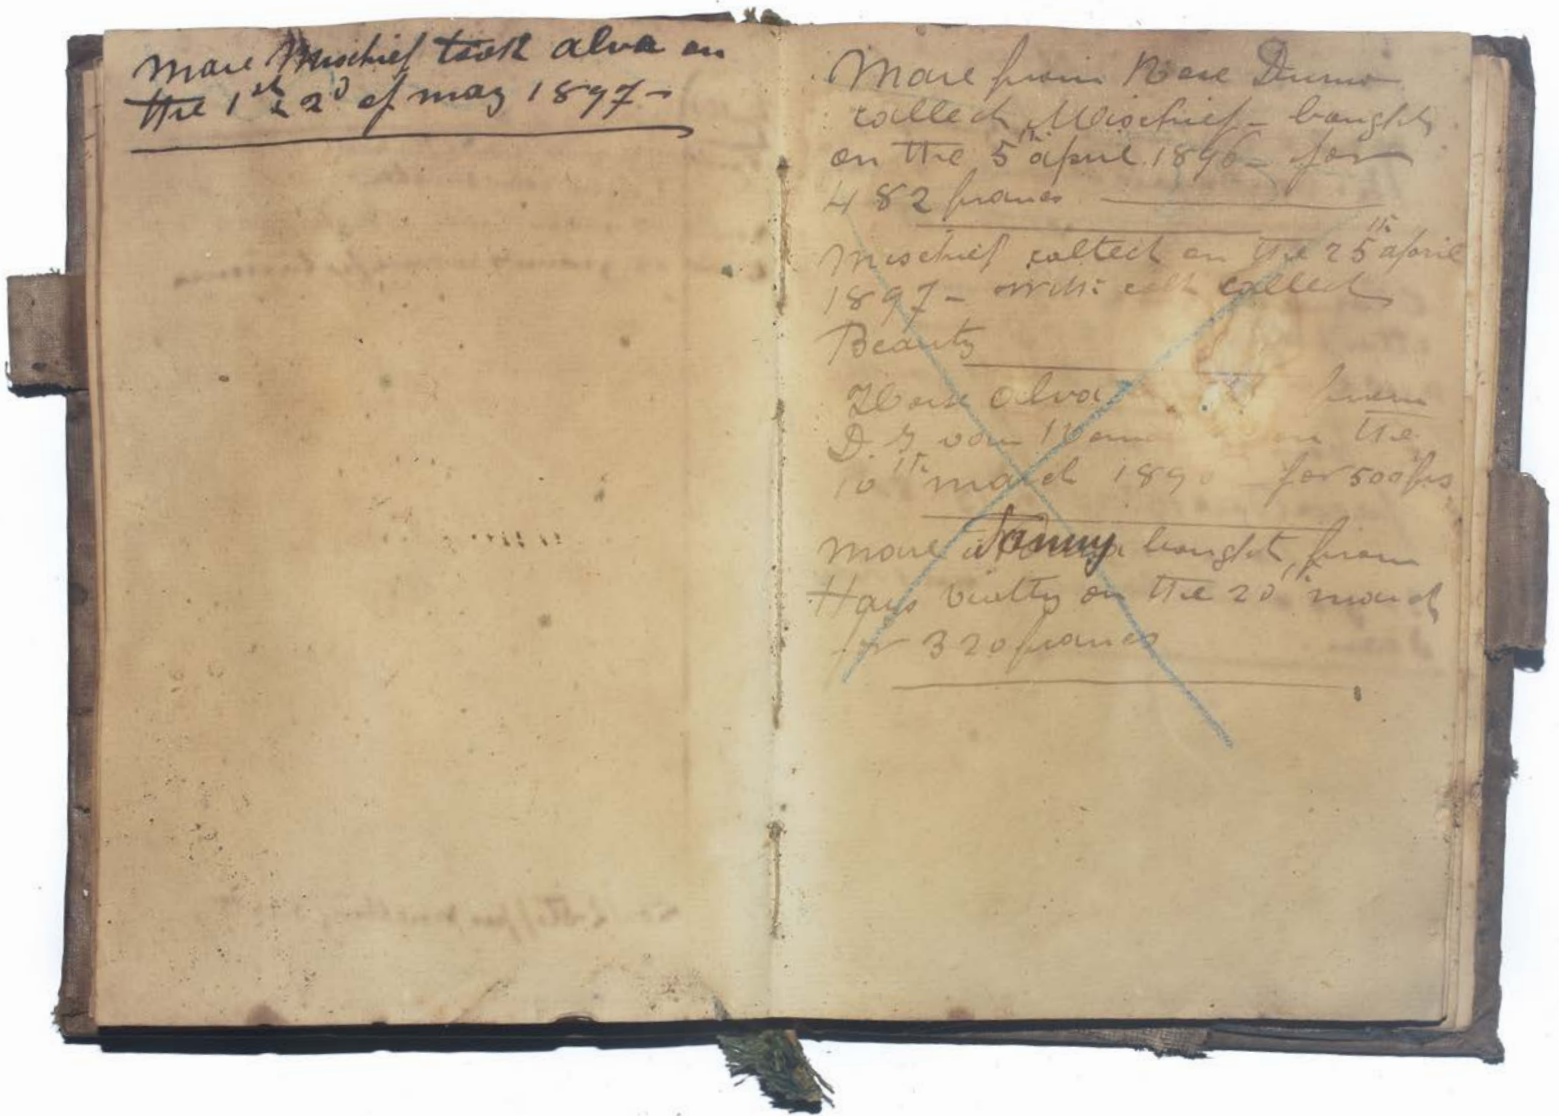 mare Mischief took alva on
the 1st & 2d of may 1897-
Mare from Rose
called Mischief - bought
on the 5th april 1896 - for
482 francs
Mischief colted on the 25th april
1897 - colt called
Beauty
Horse alva from
D. the
10th march 189 for 500 frs
mare Fanny bought from
on the 20th march
for 320 francs